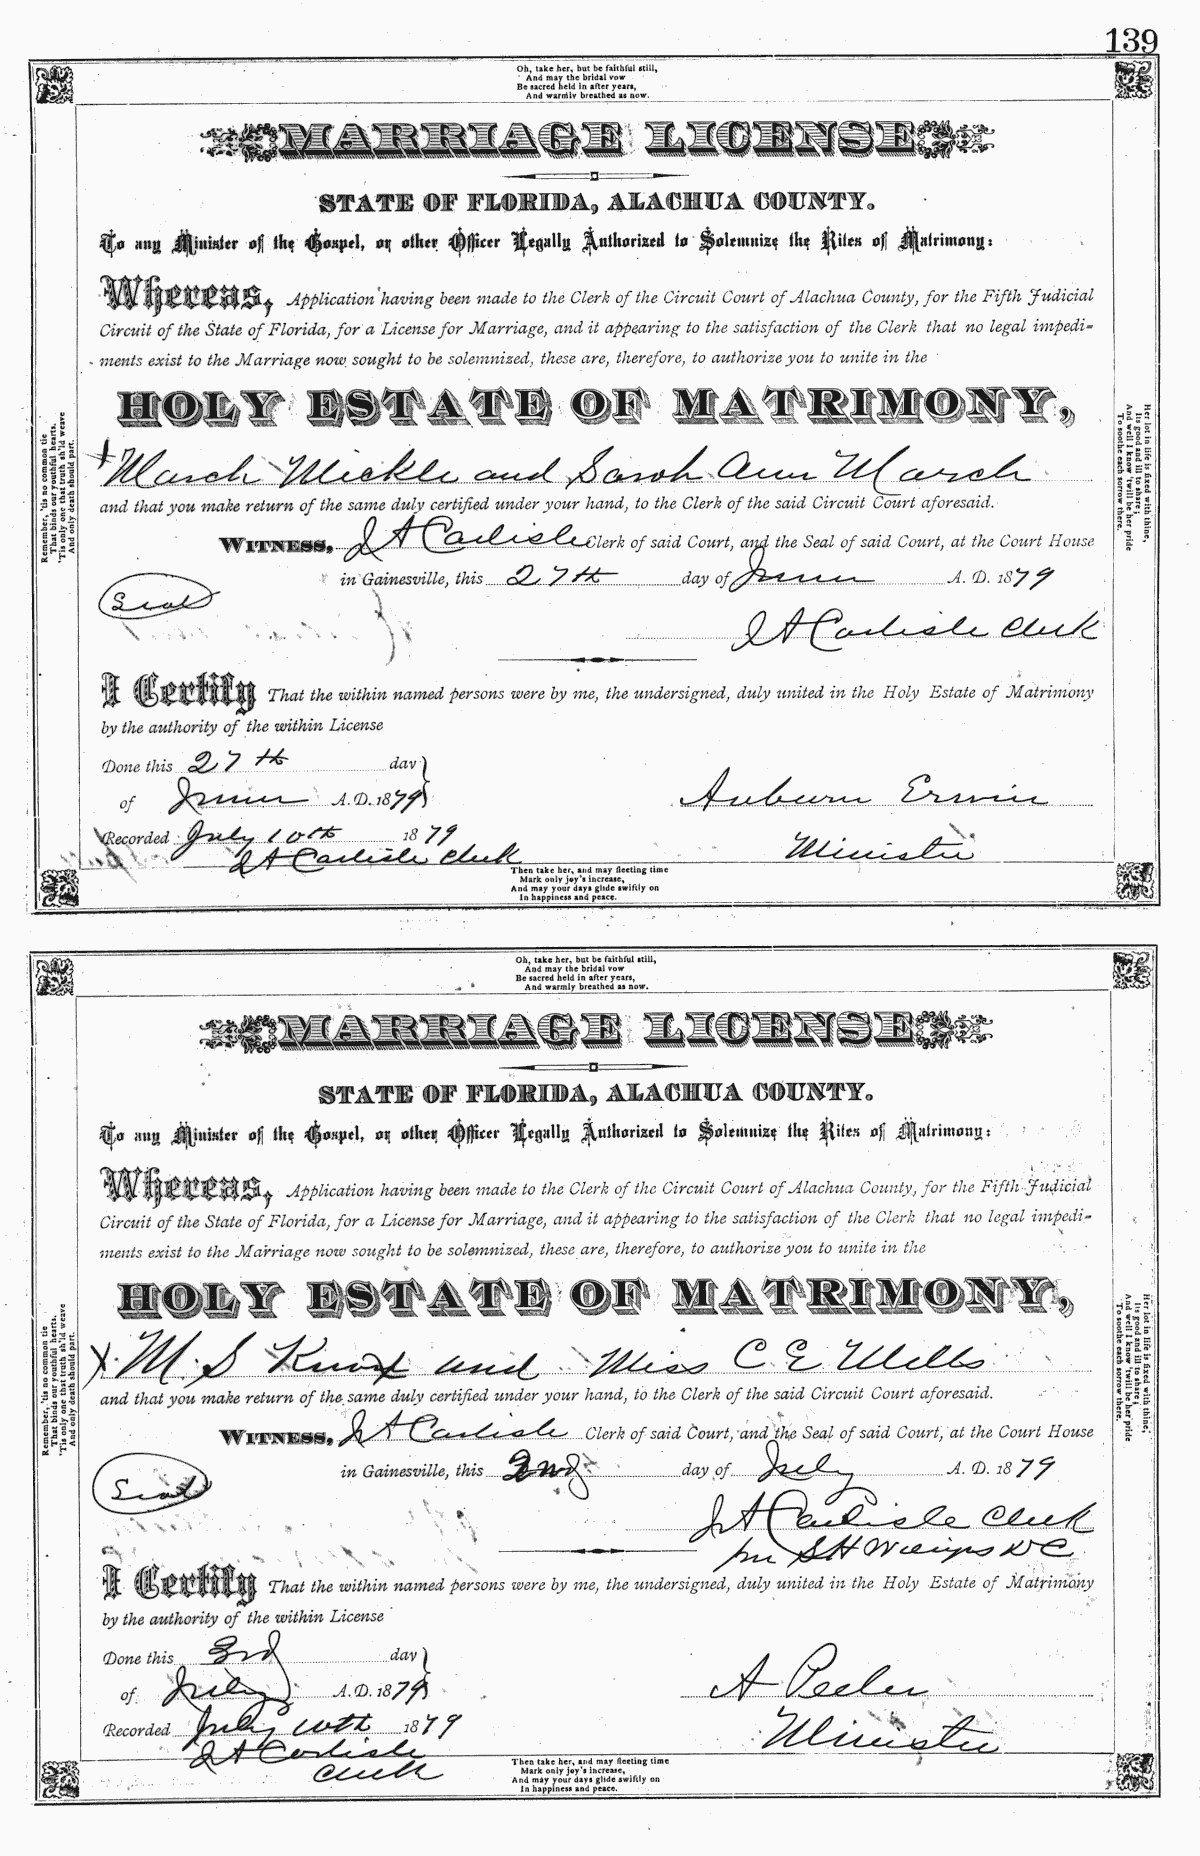 139
Oh, take her, but be faithful still,
And may the bridal vow
Be sacred held in after years,
And warmly breathed as now.
MARRIAGE LICENSE
STATE OF FLORIDA, ALACHUA COUNTY.
To any Minister of the Gospel, or other Officer Legally Authorized to Solemnize the Rites of Matrimony:
Whereas, Application having been made to the Clerk of the Circuit Court of Alachua County, for the Fifth Judicial
Circuit of the State of Florida, for a License for Marriage, and it appearing to the satisfaction of the Clerk that no legal impedi-
ments exist to the Marriage now sought to be solemnized, these are, therefore, to authorize you to unite in the
HOLY ESTATE OF MATRIMONY,
March Mickle and Sarah Ann March
and that you make return of the same duly certified under your hand, to the Clerk of the said Circuit Court aforesaid.
WITNESS, J A Carlisle Clerk of said Court, and the Seal of said Court, at the Court House
in Gainesville, this 27th day of June A. D. 1879
Seal
J A Carlisle Clerk
I Certify That the within named persons were by me, the undersigned, duly united in the Holy Estate of Matrimony
by the authority of the within License
Done this 27th day
of June A. D. 1879
Auburn Erwin
Recorded July 10th 1879
Minister
J A Carlisle Clerk
Then take her, and may fleeting time
Mark only joy's increase,
And may your days glide swiftly on
In happiness and peace.
Remember, 'tis no common tie
That binds our youthful hearts,
'Tis only one that truth sh'ld weave
And only death should part.
Her lot in life is fixed with thine,
Its good and ill to share;
And well I know 'twill be her pride
To soothe each sorrow there.
Oh, take her, but be faithful still,
And may the bridal vow
Be sacred held in after years,
And warmly breathed as now.
MARRIAGE LICENSE
STATE OF FLORIDA, ALACHUA COUNTY.
To any Minister of the Gospel, or other Officer Legally Authorized to Solemnize the Rites of Matrimony:
Whereas, Application having been made to the Clerk of the Circuit Court of Alachua County, for the Fifth Judicial
Circuit of the State of Florida, for a License for Marriage, and it appearing to the satisfaction of the Clerk that no legal impedi-
ments exist to the Marriage now sought to be solemnized, these are, therefore, to authorize you to unite in the
HOLY ESTATE OF MATRIMONY,
X M. S Knox and Miss C E Wells
and that you make return of the same duly certified under your hand, to the Clerk of the said Circuit Court aforesaid.
WITNESS, J A Carlisle Clerk of said Court, and the Seal of said Court, at the Court House
in Gainesville, this 2nd day of July A. D. 1879
Seal
J A Carlisle Clerk
per S H D C
I Certify That the within named persons were by me, the undersigned, duly united in the Holy Estate of Matrimony
by the authority of the within License
Done this 3rd day
of July A. D. 1879
A Peeler
Recorded July 10th 1879
Minister
J A Carlisle
Clerk
Then take her, and may fleeting time
Mark only joy's increase,
And may your days glide swiftly on
In happiness and peace.
Remember, 'tis no common tie
That binds our youthful hearts,
'Tis only one that truth sh'ld weave
And only death should part.
Her lot in life is fixed with thine,
Its good and ill to share;
And well I know 'twill be her pride
To soothe each sorrow there.